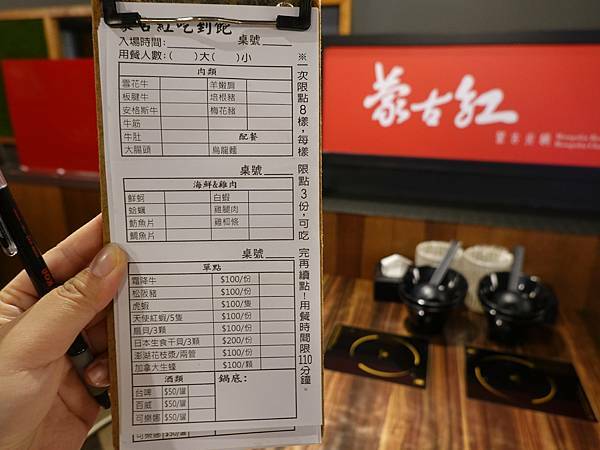 蒙古紅吃到飽
入場時間: 桌號
用餐人數:( )大( )小
肉類
雪花牛 羊嫩肩
板腱牛 培根豬
安格斯牛 梅花豬
牛筋
牛肚 配餐
大腸頭 烏龍麵
桌號
海鮮&雞肉
鮮蚵 白蝦
蛤蠣 雞腿肉
魴魚片 雞柳條
鯛魚片
桌號
單點
霜降牛 $100/份
松阪豬 $100/份
虎蝦 $100/隻
天使紅蝦/5隻 $100/份
扇貝/3顆 $100/份
日本生食干貝/3顆 $200/份
澎湖花枝漿/兩管 $100/份
加拿大生蠔 $100/顆
酒類 鍋底:
台啤 $50/罐
百威 $50/罐
可樂娜 $50/罐
可樂娜
※一次限點8樣,每樣限點3份,可吃完再續點!用餐時間限110分鐘。
蒙古紅